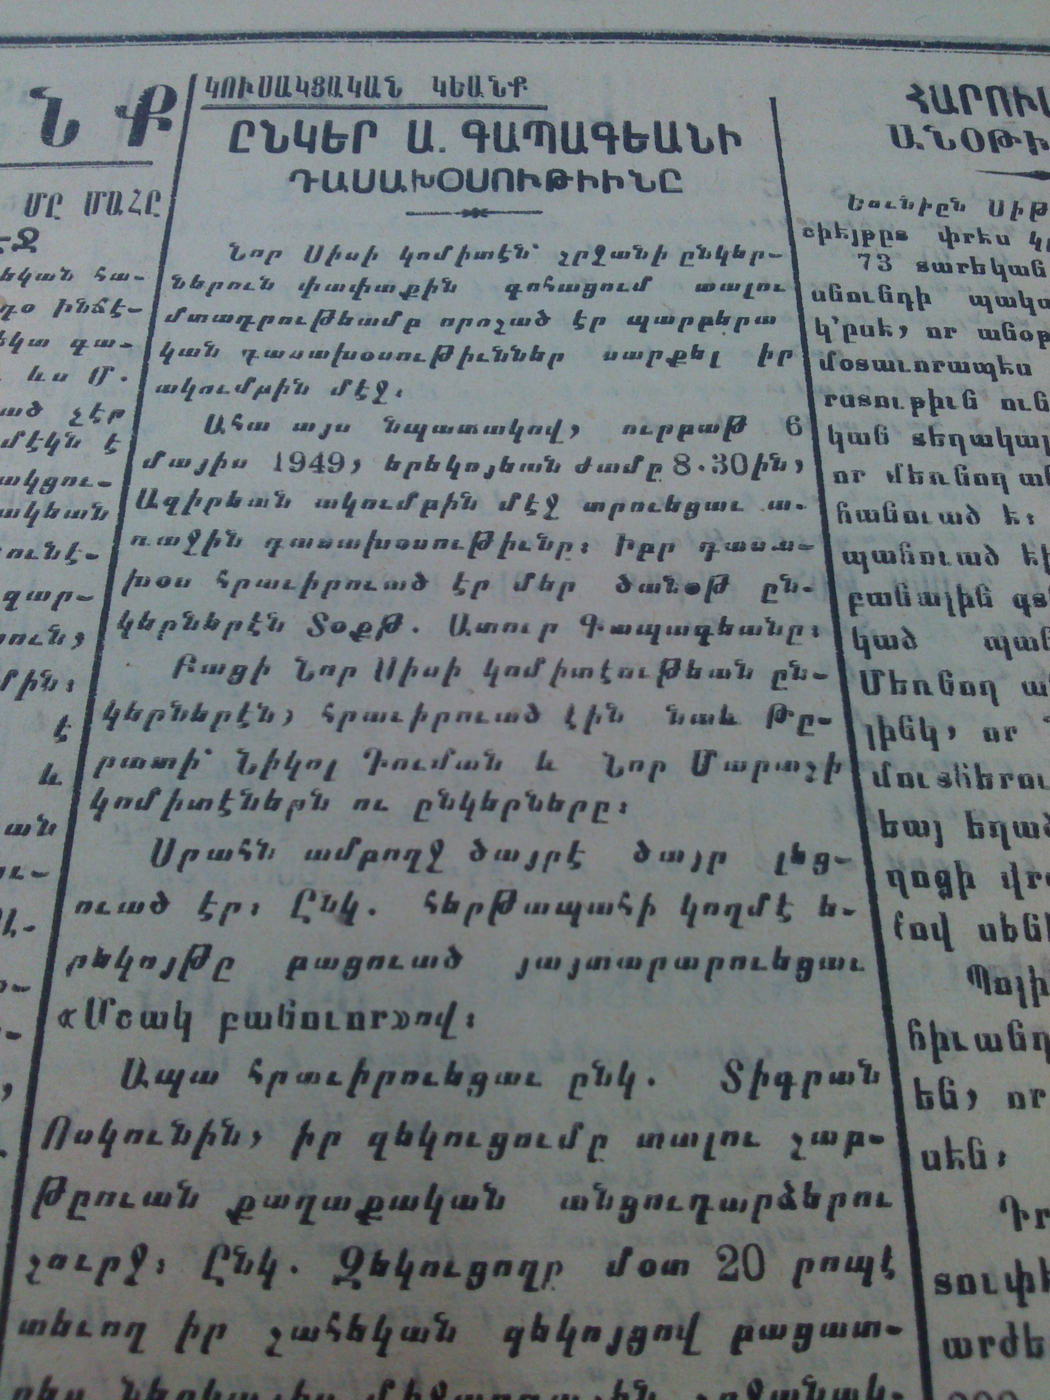 Ն Ք
ՄԸ ՄԱՀԸ
ԿՈՒՍԱԿՑԱԿԱՆ ԿԵԱՆՔ
ԸՆԿԵՐ Ա. ԳԱՊԱԳԵԱՆԻ
ԴԱՍԱԽՕՍՈՒԹԻԻՆԸ
Նոր Սիսի կոմիտէն՝ շրջանի ընկեր-
ներուն փափաքին գոհացում տալու
մտադրութեամբ որոշած էր պարբերա
կան դասախօսութիւններ սարքել իր
ակումբին մէջ։
Ահա այս նպատակով, ուրբաթ 6
մայիս 1949, երեկոյեան ժամը 8.30ին,
Ազիրեան ակումբին մէջ տրուեցաւ ա-
ռաջին դասախօսութիւնը։ Իբր դասա-
խօս հրաւիրուած էր մեր ծանօթ ըն-
կերներէն Տօքթ. Ատուր Գապագեանը։
Բացի Նոր Սիսի կոմիտէութեան ըն-
կերներէն, հրաւիրուած էին նաև Թը-
րատի՝ Նիկոլ Դուման և Նոր Մարաշի
կոմիտէներն ու ընկերները։
Սրահն ամբողջ ծայրէ ծայր լեց-
ուած էր։ Ընկ. հերթապահի կողմէ ե-
րեկոյթը բացուած յայտարարուեցաւ
«Մշակ բանուոր»ով։
Ապա հրաւիրուեցաւ ընկ. Տիգրան
Ոսկունին, իր զեկուցումը տալու շաբ-
թըուան քաղաքական անցուդարձերու
շուրջ։ Ընկ. Զեկուցողը մօտ 20 րոպէ
տեւող իր շահեկան զեկոյցով բացատ-
ԱՆՕԹԻ
Եունիըն Սիթ
73 տարեկան
սնունդի պակա
կ՚ըսե, որ անօթ
մօտաւորապես
րատութիւն ուն
կան տեղակալ
որ մեռնող ան
հանուած է։
կած պան
Մեռնող ա
լինկ, որ
եայ եղած
Պոլի
հիւանդ
են, որ
սեն։
արժե